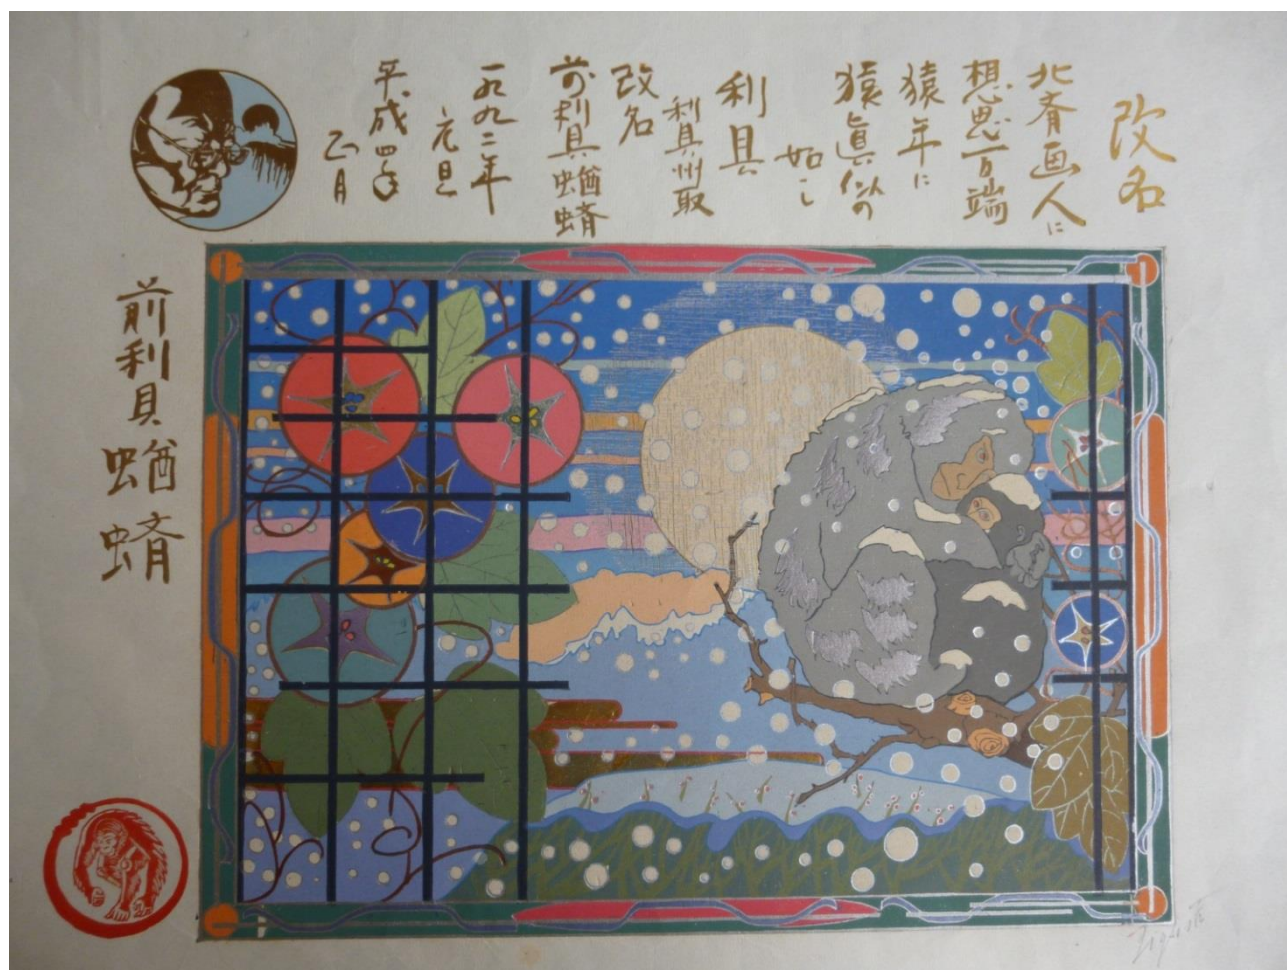 改名
北斉画人に
想思百端
猿年に
猿眞似の
如し
利貝
利貝州取
改名
前利貝蝤蠐
一九九二年
元旦
平成四年
正月
前利貝蝤蠐